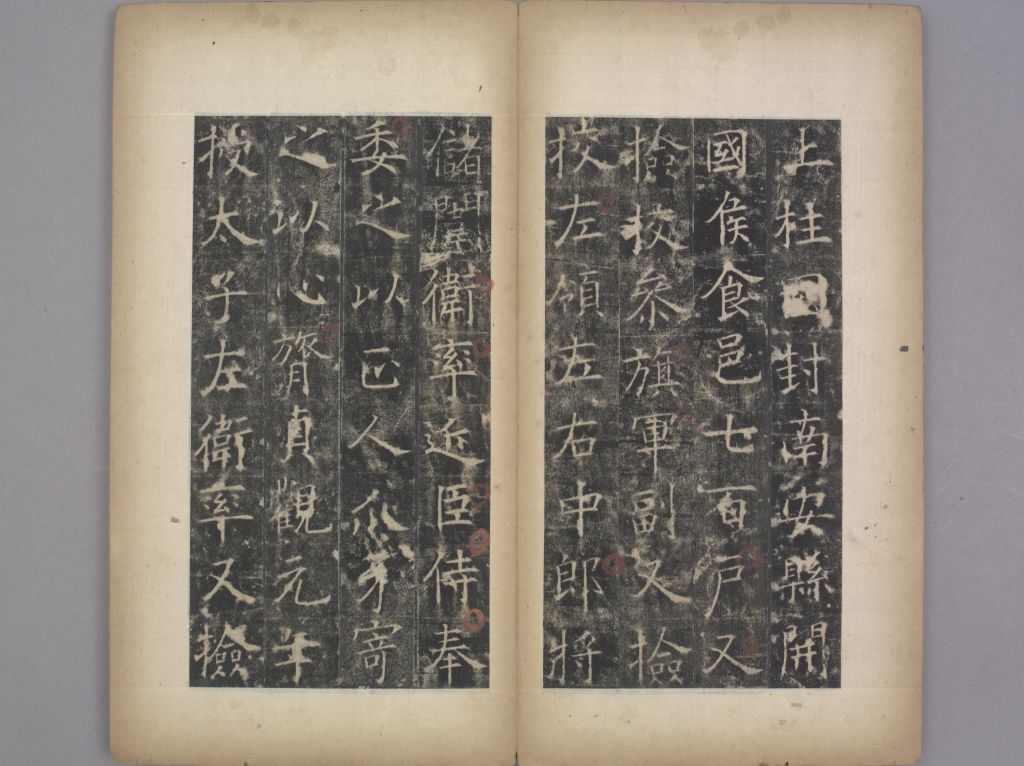 上柱國封南安縣開
國侯食邑七百戶又
撿校參旗軍副又撿
校左領左右中郎將
儲闈衛率近臣侍奉
委之以正人爪牙寄
之以心膂貞觀元年
授太子左衛率又撿